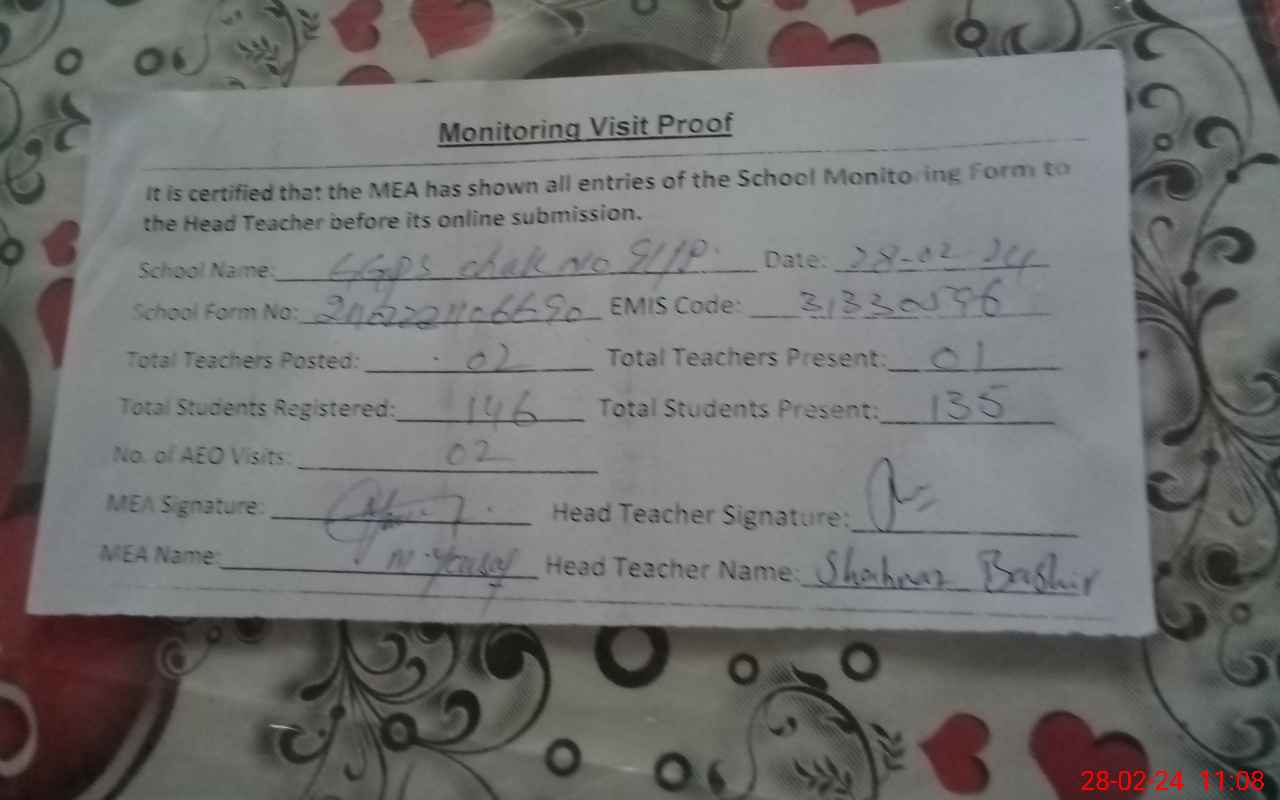 Monitoring Visit Proof
It is certified that the MEA has shown all entries of the School Monitoring Form to
the Head Teacher before its online submission.
School Name: GGPS chak no Date: 28-02-24
School Form No: EMIS Code:
Total Teachers Posted: 02 Total Teachers Present: 01
Total Students Registered: 146 Total Students Present: 135
No. of AEO Visits: 02
MEA Signature: Head Teacher Signature:
MEA Name: Head Teacher Name: Shahnaz Bashir
28-02-24 11:08